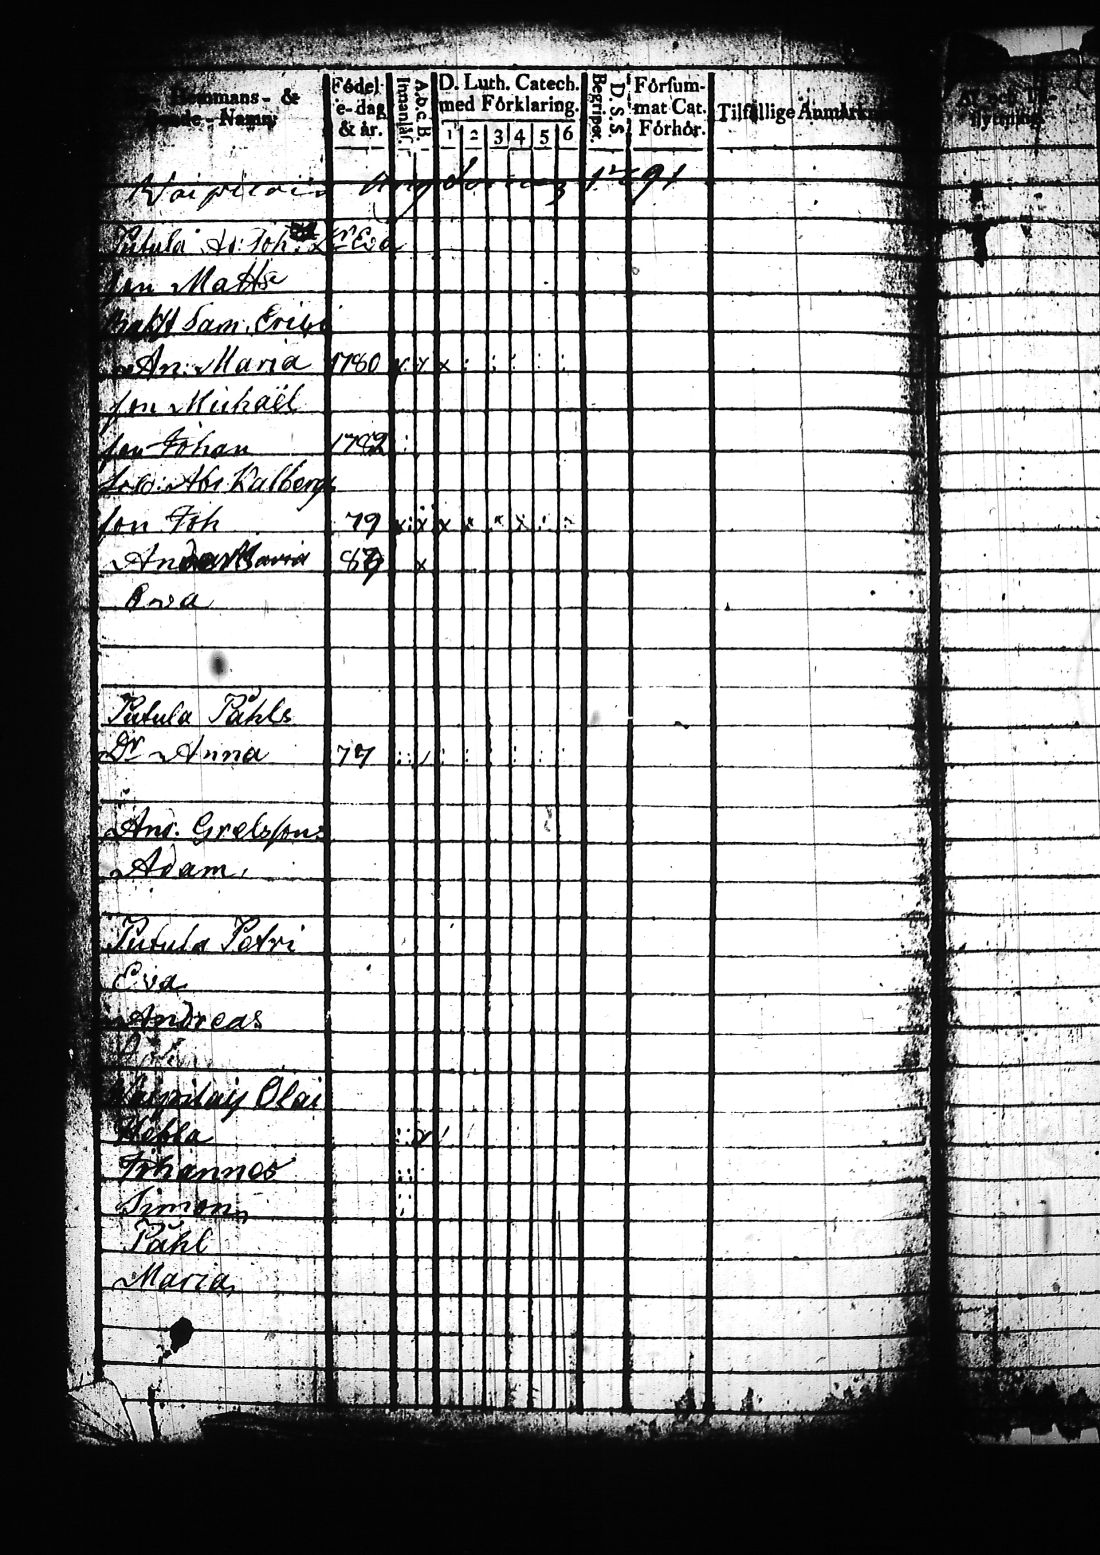 Hemmans- & Bonde-Namn:
Födel-
e-dag
& år.
Innanläs.
A. b. c. B
D. Luth. Catech.
med Förklaring.
1 2 3 4 5 6
Begriper.
D. S. S.
Försum-
mat Cat.
Förhör.
Tilfällige Anmärkn
flyttning
Ungdomen 1791
Putula Joh: Dr Eva
son Matts
Sam. Erici
An: Maria 1780 x x x
son Michaël
son Johan 1782
Kalberg
son Joh 79 x x x x x x
Maria 8 x
Eva
Putula Påhls
Dr Anna 77
And. Grelssons
Adam
Putula Petri
Eva
Andreas
Olai
Hebla x
Johannes
Simon
Påhl
Maria